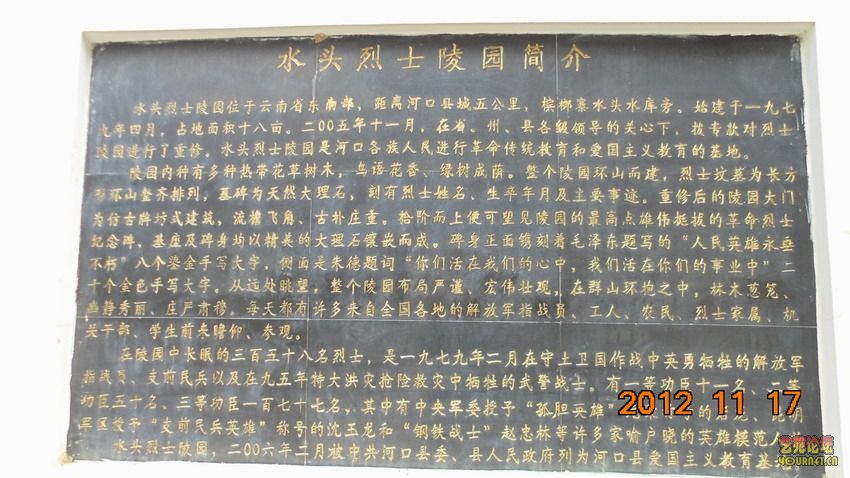 水头烈士陵园简介
水头烈士陵园位于云南省东南部，距离河口县城五公里，槟榔寨水头水库旁。始建于一九七
九年四月，占地面积十八亩。二00五年十一月，在省、州、县各级领导的关心下，拨专款对烈士
陵园进行了重修。水头烈士陵园是河口各族人民进行革命传统教育和爱国主义教育的基地。
陵园内种有多种热带花草树木，鸟语花香、绿树成荫。整个陵园环山而建，烈士坟墓为长方
形环山整齐排列，墓碑为天然大理石，刻有烈士姓名、生卒年月及主要事迹。重修后的陵园大门
为仿古牌坊式建筑，流檐飞角、古朴庄重。拾阶而上便可望见陵园的最高点雄伟挺拔的革命烈士
纪念碑、基座及碑身均以精美的大理石镶嵌而成。碑身正面镌刻着毛泽东题写的“人民英雄永垂
不朽”八个鎏金手写大字，侧面是朱德题词“你们活在我们的心中，我们活在你们的事业中”二
十个金色手写大字。从远处眺望，整个陵园布局严谨、宏伟壮观，在群山环抱之中，林木葱笼、
幽静秀丽、庄严肃穆。每天都有许多来自全国各地的解放军指战员、工人、农民、烈士家属、机
关干部、学生前来瞻仰、参观。
在陵园中长眠的三百五十八名烈士，是一九七九年二月在守土卫国作战中英勇牺牲的解放军
指战员、支前民兵以及在九五年特大洪灾抢险救灾中牺牲的武警战士。有一等功臣十一名、二等
功臣五十名、三等功臣一百七十七名，其中有中央军委授予“孤胆英雄
军区授予“支前民兵英雄”称号的沈玉龙和“钢铁战士”赵忠林等许多家喻户晓的英雄模范人
水头烈士陵园，二00六年二月被中共河口县委、县人民政府列为河口县爱国主义教育基
2012 11 17
艺苑论坛
YOURNET.CN